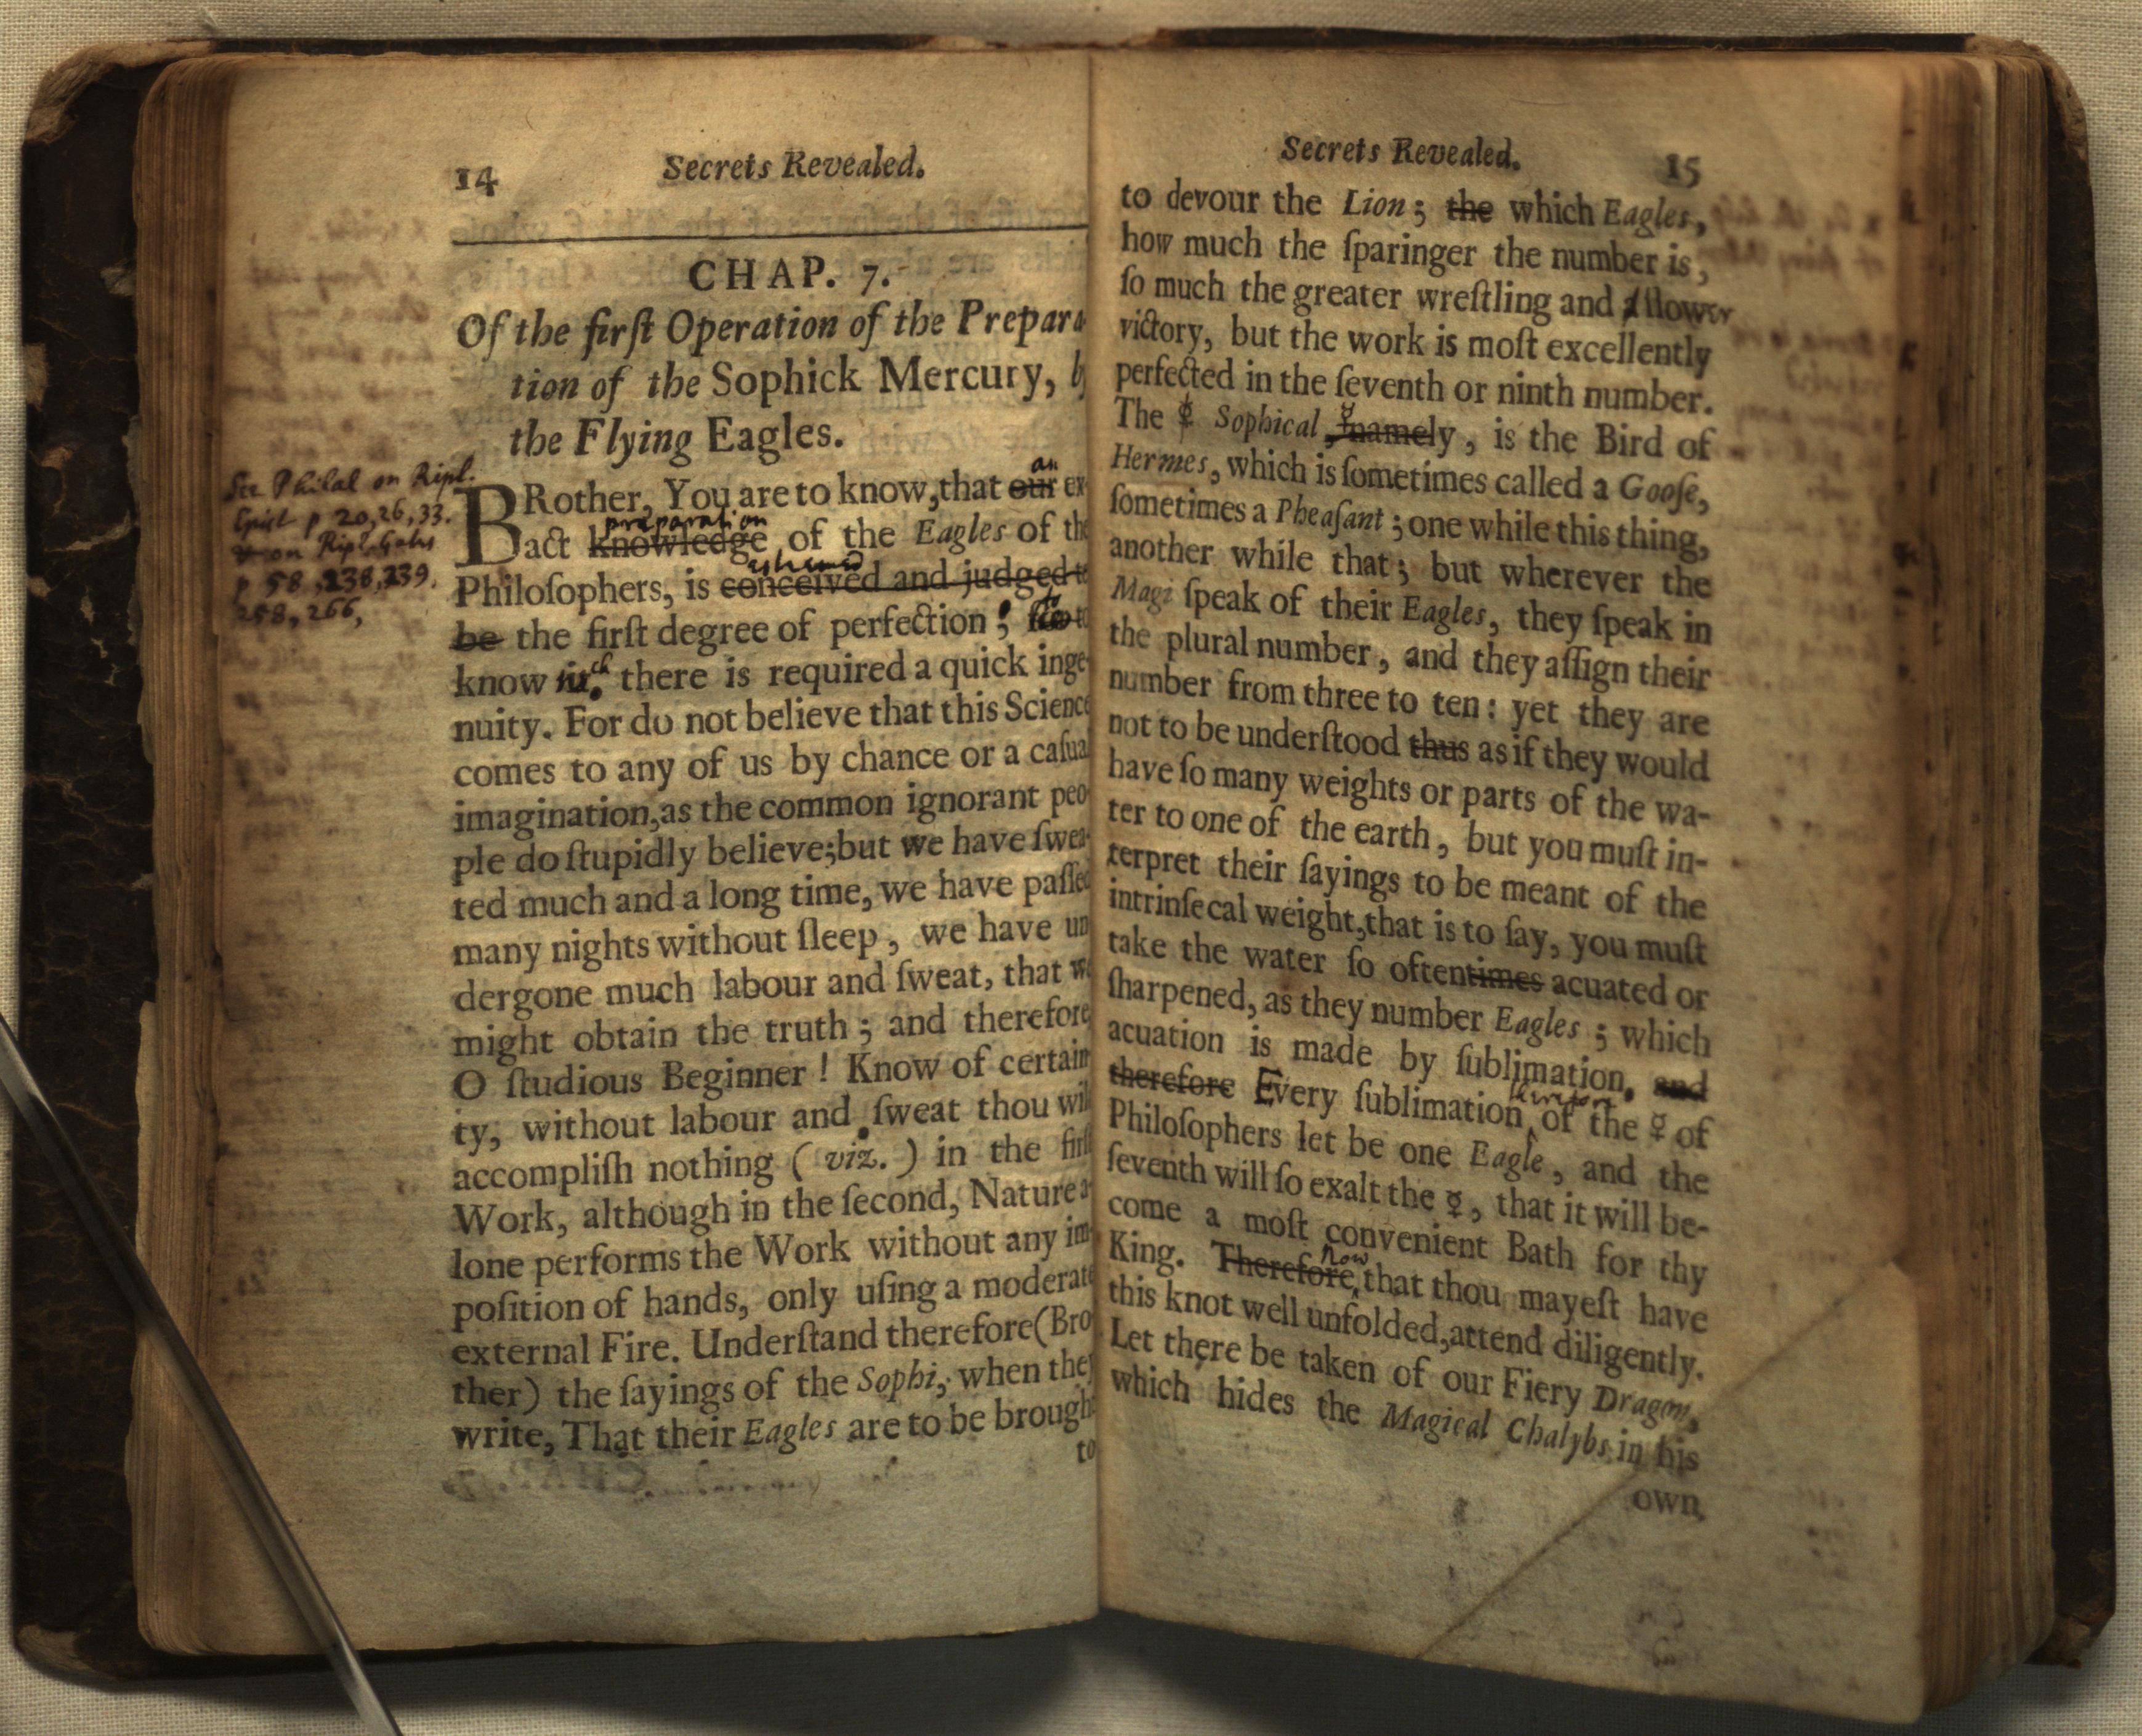 14 Secrets Revealed.
CHAP. 7.
Of the firſt Operation of the Prepara
tion of the Sophick Mercury, by
the Flying Eagles.
See Philal on Ripl.
Epist p 20, 26, 33.
on Ripl. Gates
p 58, 238, 239.
258, 266,
an
BRother, You are to know, that our ex-
preparation
act knowledge of the Eagles of the
esteemed
Philoſophers, is conceived and judged to
be the firſt degree of perfection; to
know there is required a quick inge-
nuity. For do not believe that this Science
comes to any of us by chance or a caſual
imagination, as the common ignorant peo-
ple do ſtupidly believe; but we have ſwea-
ted much and a long time, we have paſſed
many nights without ſleep, we have un
dergone much labour and ſweat, that we
might obtain the truth; and therefore
O ſtudious Beginner! Know of certain
ty, without labour and ſweat thou will
accompliſh nothing (viz.) in the firſt
Work, although in the ſecond, Nature a-
lone performs the Work without any im-
poſition of hands, only uſing a moderate
external Fire. Underſtand therefore (Bro
ther) the ſayings of the Sophi, when they
write, That their Eagles are to be brought
to
Secrets Revealed. 15
to devour the Lion; the which Eagles,
how much the ſparinger the number is,
ſo much the greater wreſtling and ſlower
victory, but the work is moſt excellently
perfected in the ſeventh or ninth number.
The ☿ Sophical ☿ namely, is the Bird of
Hermes, which is ſometimes called a Gooſe,
ſometimes a Pheaſant; one while this thing,
another while that; but wherever the
Magi ſpeak of their Eagles, they ſpeak in
the plural number, and they aſſign their
number from three to ten: yet they are
not to be underſtood thus as if they would
have ſo many weights or parts of the wa-
ter to one of the earth, but you muſt in-
terpret their ſayings to be meant of the
intrinſecal weight, that is to ſay, you muſt
take the water ſo oftentimes acuated or
ſharpened, as they number Eagles; which
acuation is made by ſublimation. and
therefore
therefore Every ſublimation of the ☿ of
Philoſophers let be one Eagle, and the
ſeventh will ſo exalt the ☿, that it will be-
come a moſt convenient Bath for thy
now
King. Therefore, that thou mayeſt have
this knot well unfolded, attend diligently.
Let there be taken of our Fiery Dragon,
which hides the Magical Chalybs in his
own